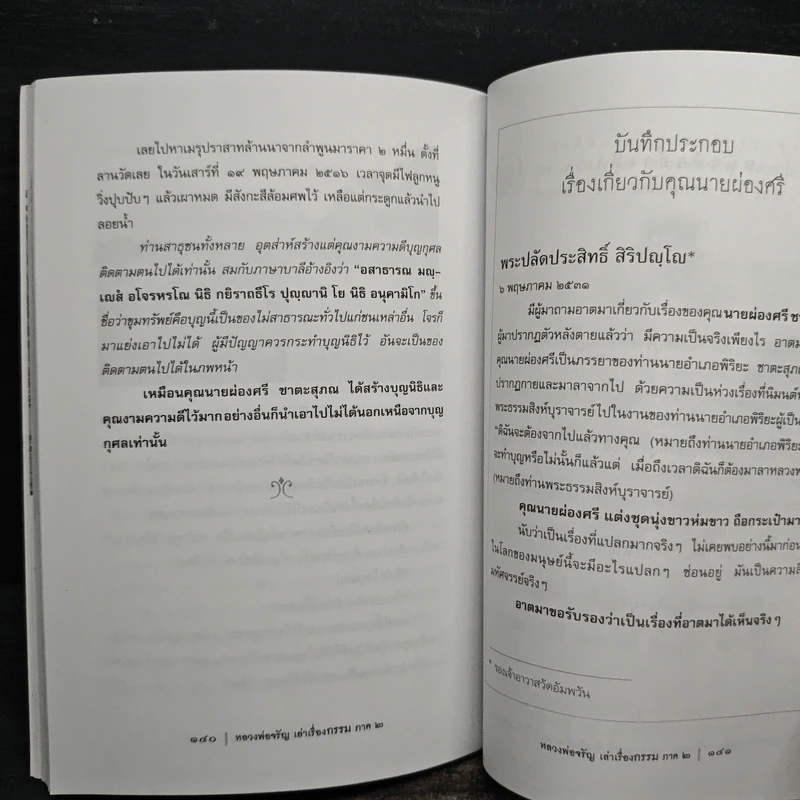 เลยไปหาเมรุปราสาทล้านนาจากลำพูนมาราคา ๒ หมื่น ตั้งที่
ลานวัดเลย ในวันเสาร์ที่ ๑๙ พฤษภาคม ๒๕๑๖ เวลาจุดมีไฟลูกหนู
วิ่งปุบปับๆ แล้วเผาหมด มีสังกะสีล้อมศพไว้ เหลือแต่กระดูกแล้วนำไป
ลอยน้ำ
ท่านสาธุชนทั้งหลาย อุตส่าห์สร้างแต่คุณงามความดีบุญกุศล
ติดตามตนไปได้เท่านั้น สมกับภาษาบาลีอ้างอิงว่า “อสาธารณ มญฺ-
เญสํ อโจรหรโณ นิธิ กยิราถธีโร ปุญฺญานิ โย นิธิ อนุคามิโก” ขึ้น
ชื่อว่าขุมทรัพย์คือบุญนี้เป็นของไม่สาธารณะทั่วไปแก่ชนเหล่าอื่น โจรก็
มาแย่งเอาไปไม่ได้ ผู้มีปัญญาควรกระทำบุญนิธิไว้ อันจะเป็นของ
ติดตามตนไปได้ในภพหน้า
เหมือนคุณนายผ่องศรี ชาตะสุภณ ได้สร้างบุญนิธิและ
คุณงามความดีไว้มากอย่างอื่นก็นำเอาไปไม่ได้นอกเหนือจากบุญ
กุศลเท่านั้น
๑๔๐ | หลวงพ่อจรัญ เล่าเรื่องกรรม ภาค ๒
บันทึกประกอบ
เรื่องเกี่ยวกับคุณนายผ่องศรี
พระปลัดประสิทธิ์ สิริปญฺโญ*
๖ พฤษภาคม ๒๕๓๑
มีผู้มาถามอาตมาเกี่ยวกับเรื่องของคุณนายผ่องศรี
ผู้มาปรากฏตัวหลังตายแล้วว่า มีความเป็นจริงเพียงไร
คุณนายผ่องศรีเป็นภรรยาของท่านนายอำเภอพิริยะ ชาตะสุภณ
ปรากฏกายและมาลาจากไป ด้วยความเป็นห่วงเรื่องที่นิมนต์
พระธรรมสิงห์บุราจารย์ไปในงานของท่านนายอำเภอพิริยะผู้เป็น
“ดิฉันจะต้องจากไปแล้วทางคุณ (หมายถึงท่านนายอำเภอพิริยะ
จะทำบุญหรือไม่นั้นก็แล้วแต่ เมื่อถึงเวลาดิฉันก็ต้องมาลาหลวง
(หมายถึงท่านพระธรรมสิงห์บุราจารย์)
คุณนายผ่องศรี แต่งชุดนุ่งขาวห่มขาว ถือกระเป๋ามา
นับว่าเป็นเรื่องที่แปลกมากจริงๆ ไม่เคยพบอย่างนี้มาก่อน
ในโลกของมนุษย์นี้จะมีอะไรแปลกๆ ซ่อนอยู่ มันเป็นความ
มหัศจรรย์จริงๆ
อาตมาขอรับรองว่าเป็นเรื่องที่อาตมาได้เห็นจริงๆ
* รองเจ้าอาวาสวัดอัมพวัน
หลวงพ่อจรัญ เล่าเรื่องกรรม ภาค ๒ | ๑๔๑